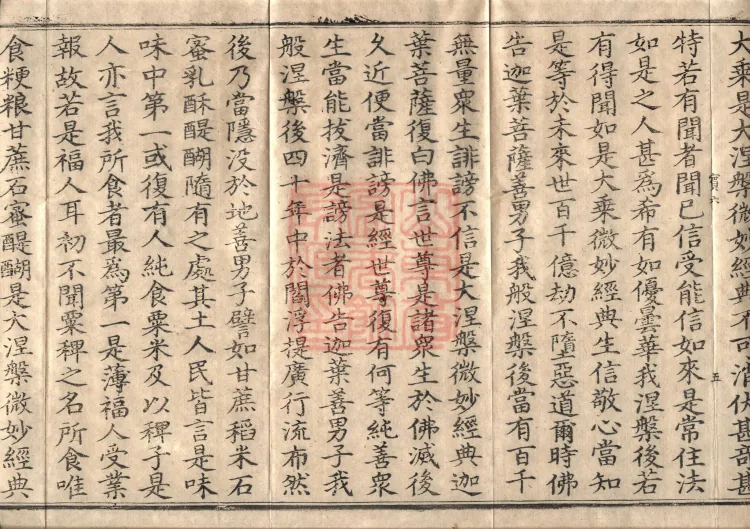 大乘是大涅槃微妙經典不可消伏甚奇甚
五
特若有聞者聞已信受能信如來是常住法
如是之人甚為希有如優曇華我涅槃後若
有得聞如是大乘微妙經典生信敬心當知
是等於未來世百千億劫不墮惡道爾時佛
告迦葉菩薩善男子我般涅槃後當有百千
無量眾生誹謗不信是大涅槃微妙經典迦
葉菩薩復白佛言世尊是諸眾生於佛滅後
久近便當誹謗是經世尊復有何等純善眾
生當能拔濟是謗法者佛告迦葉善男子我
般涅槃後四十年中於閻浮提廣行流布然
後乃當隱沒於地善男子譬如甘蔗稻米石
蜜乳酥醍醐隨有之處其土人民皆言是味
味中第一或復有人純食粟米及以稗子是
人亦言我所食者最為第一是薄福人受業
報故若是福人耳初不聞粟稗之名所食唯
食粳粮甘蔗石蜜醍醐是大涅槃微妙經典